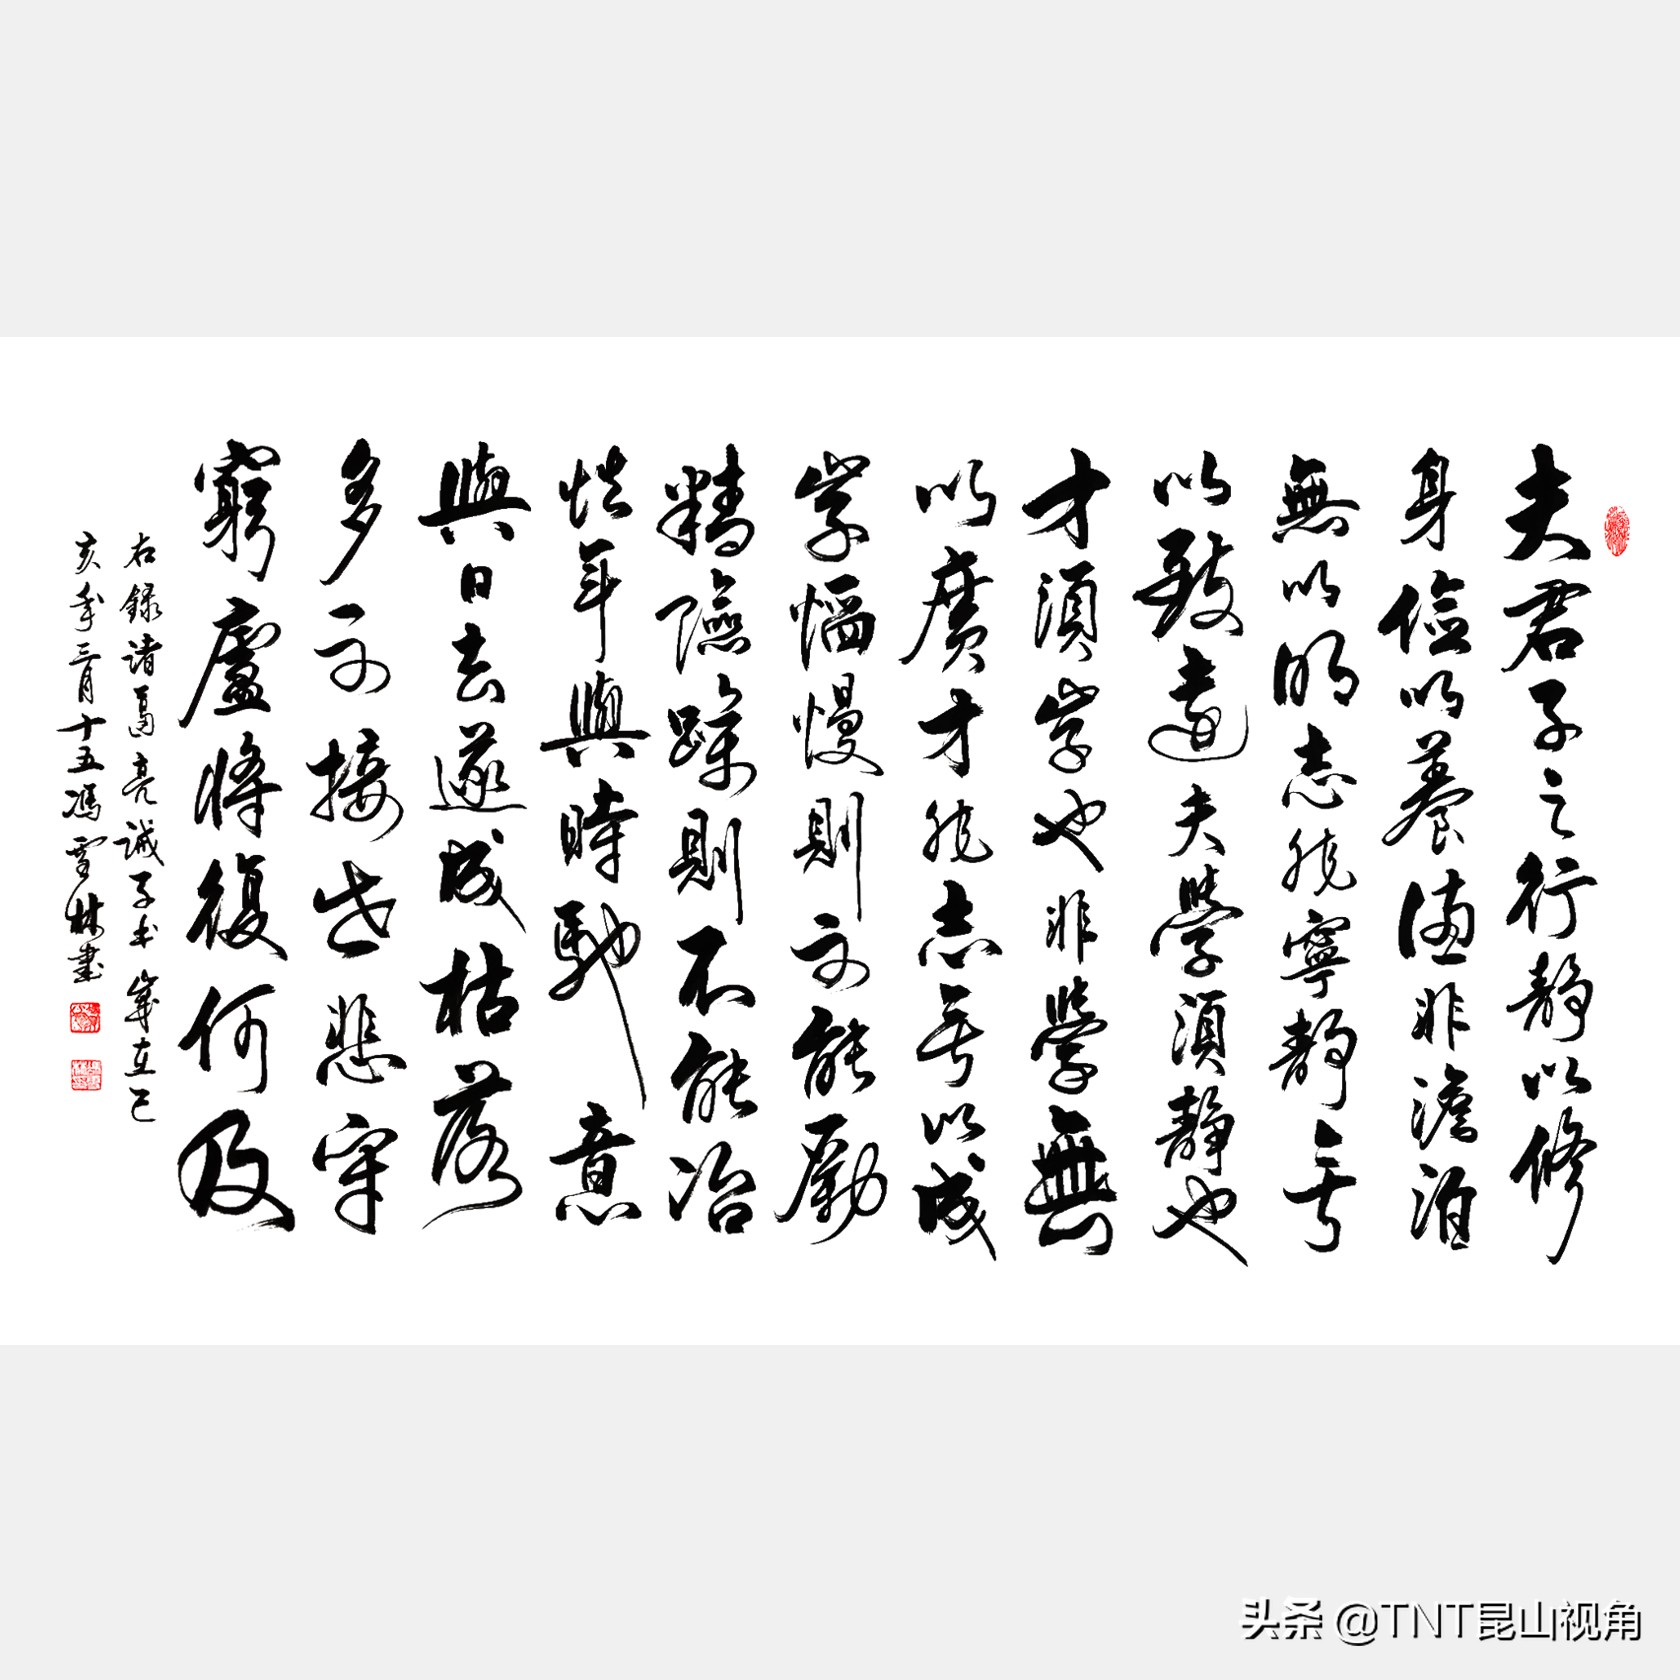 夫君子之行静以修
身儉以養德非澹泊
無以明志非寧静無
以致遠夫學須静也
才須学也非學無
以廣才非志無以成
学慆慢則不能勵
精險躁則不能冶
性年與時馳意
與日去遂成枯落
多不接世悲守
窮廬將復何及
右録诸葛亮诫子书岁在己
亥年三月十五馮雪林書
头条 @TNT昆山视角